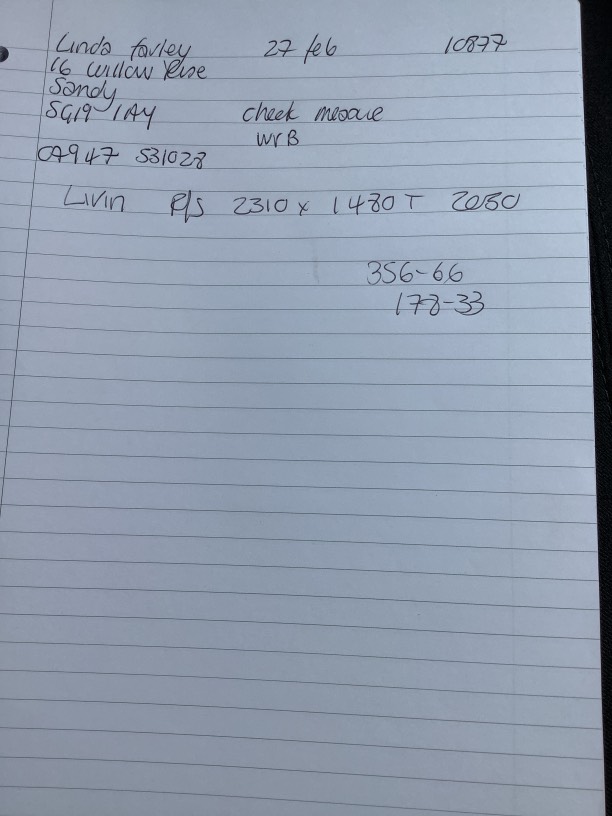 Linda farley 27 feb 10877
16 Willow Rise
Sandy
SG19 1AY check measure
WrB
07947 531028
Livin P/S 2310 x 1480 T 2050
356-66
178-33